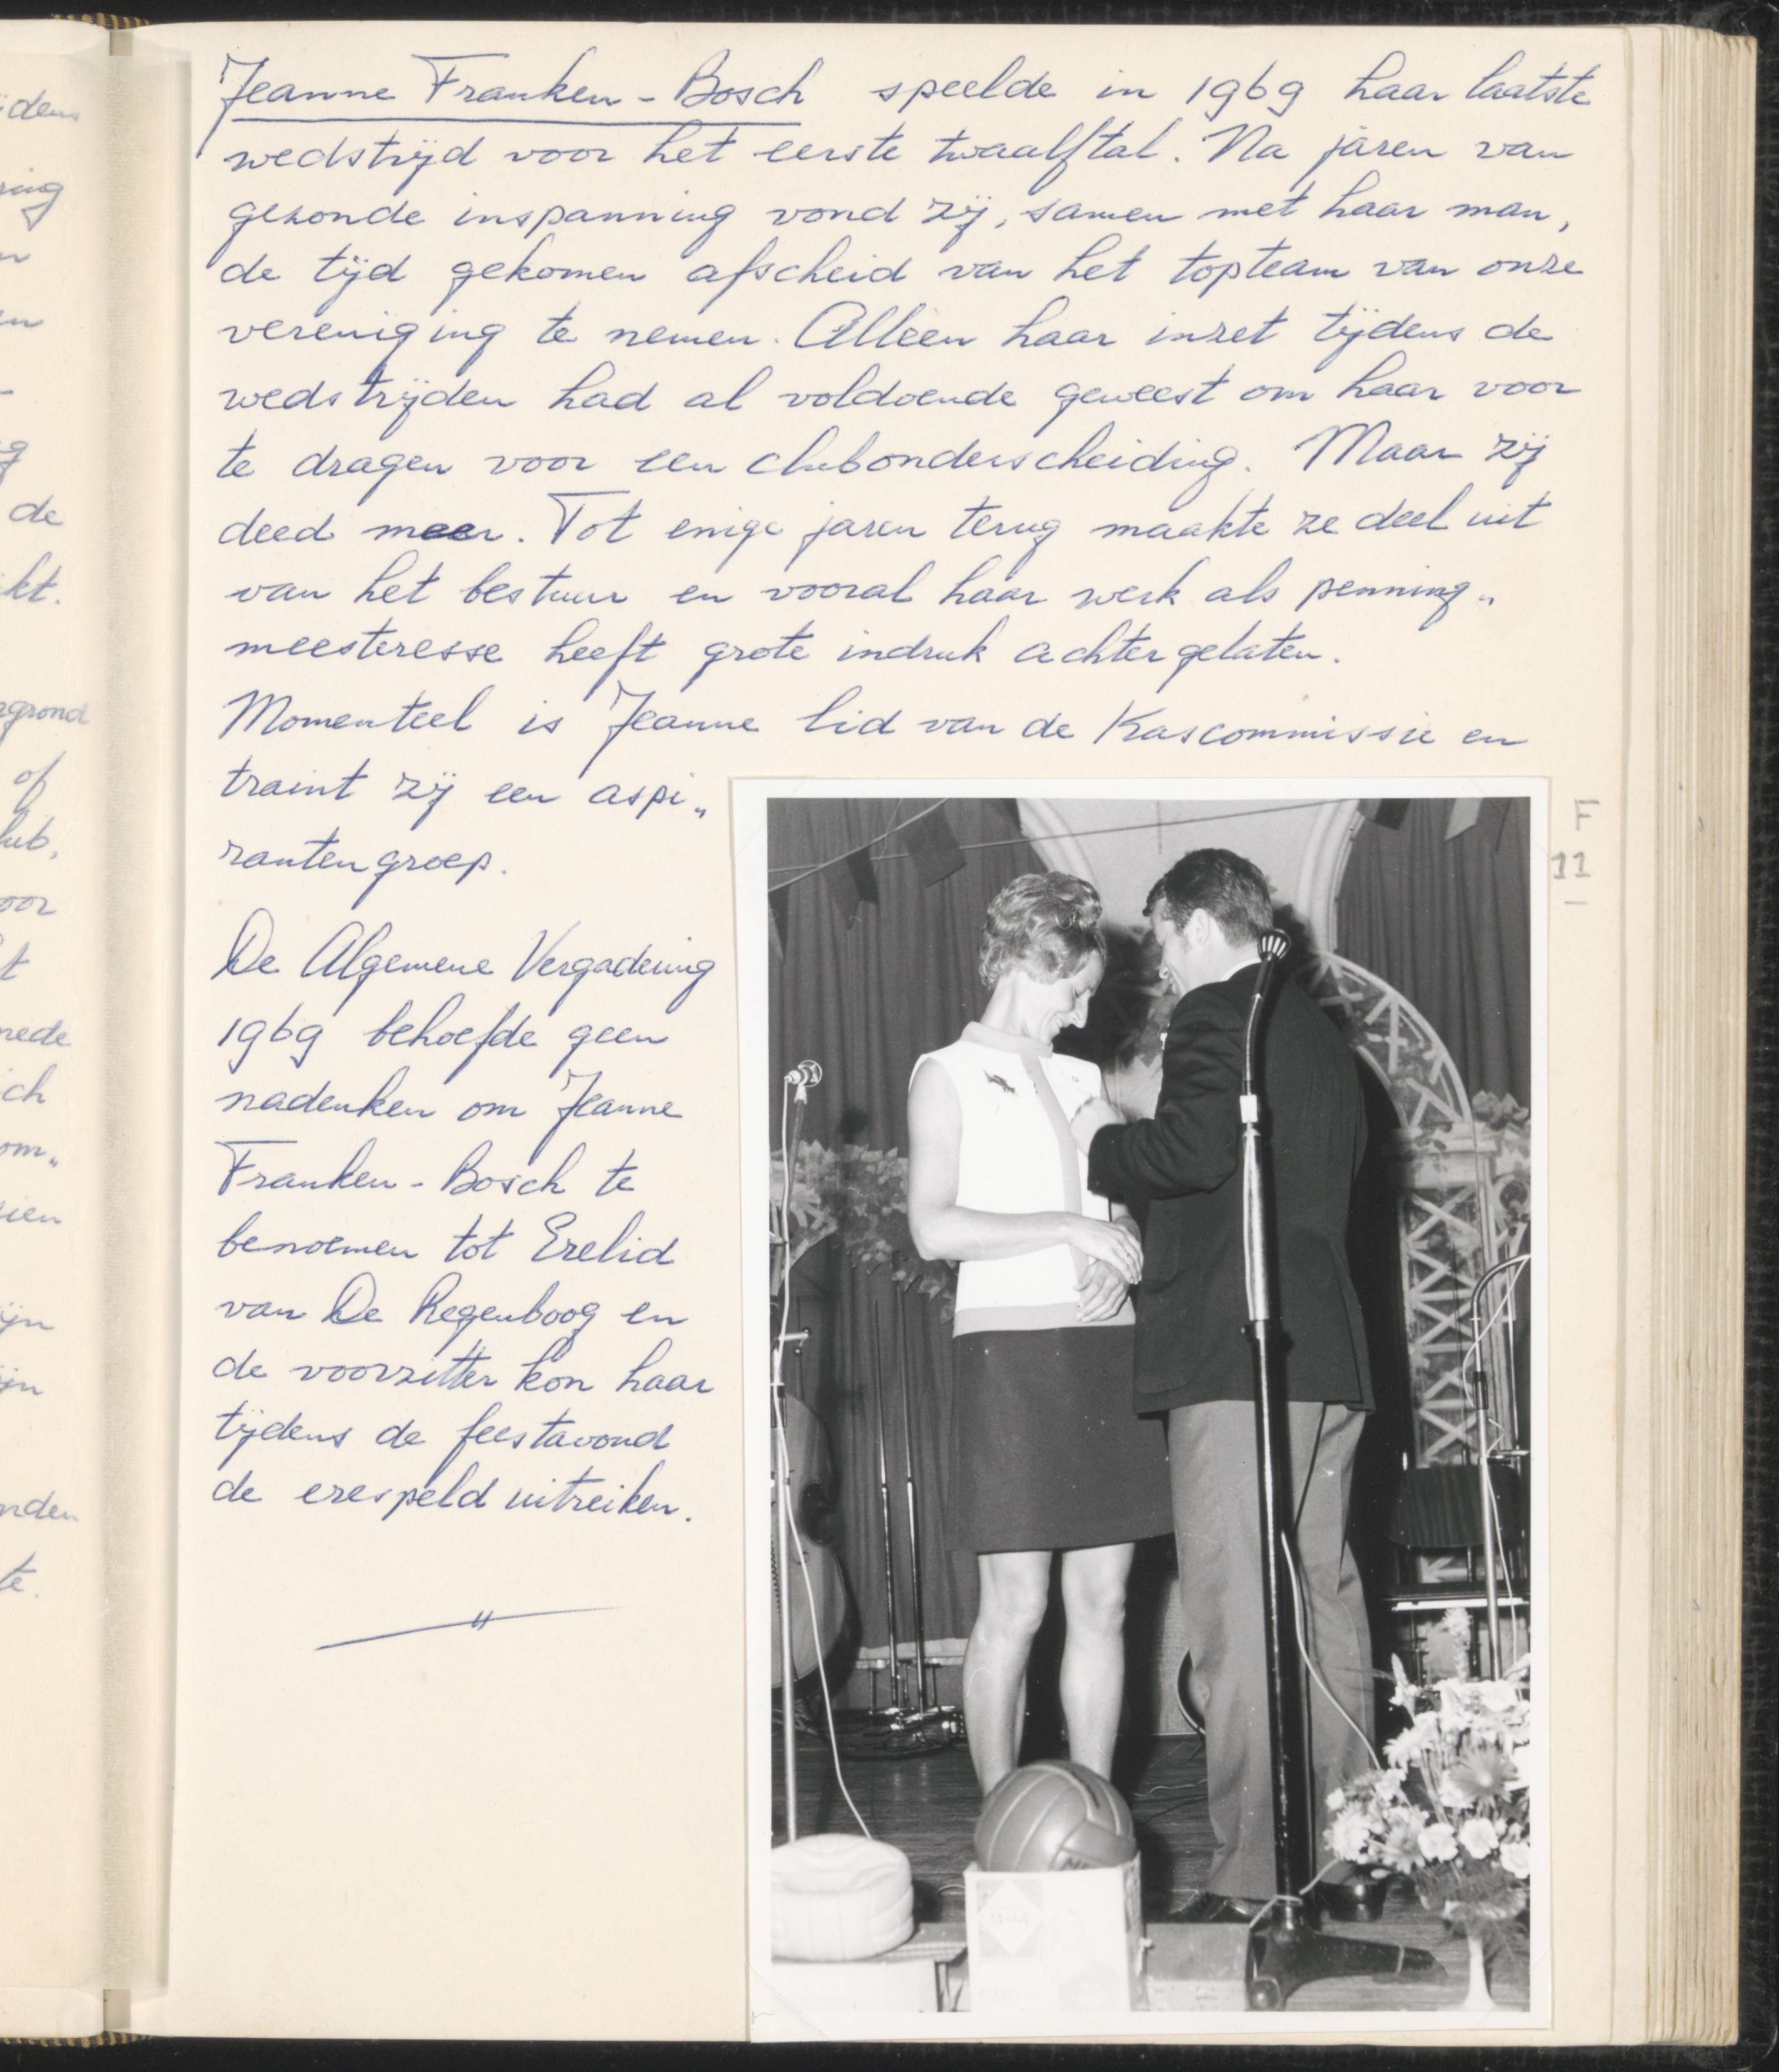 Jeanne Franken - Bosch speelde in 1969 haar laatste
wedstrijd voor het eerste twaalftal. Na jaren van
gezonde inspanning vond zij, samen met haar man,
de tijd gekomen afscheid van het topteam van onze
vereniging te nemen. Alléén haar inzet tijdens de
wedstrijden had al voldoende geweest om haar voor
te dragen voor een clubonderscheiding. Maar zij
deed meer. Tot enige jaren terug maakte ze deel uit
van het bestuur en vooral haar werk als penning„
meesteresse heeft grote indruk achtergelaten.
Momenteel is Jeanne lid van de Kascommissie en
traint zij een aspi„
rantengroep.
De Algemene Vergadering
1969 behoefde geen
nadenken om Jeanne
Franken - Bosch te
benoemen tot Erelid
van De Regenboog en
de voorzitter kon haar
tijdens de feestavond
de erespeld uitreiken.
F
11
dens
ring
de
kt.
rgrond
of
lub,
oor
t
mede
ich
om„
zien
ijn
ijn
nden
te.